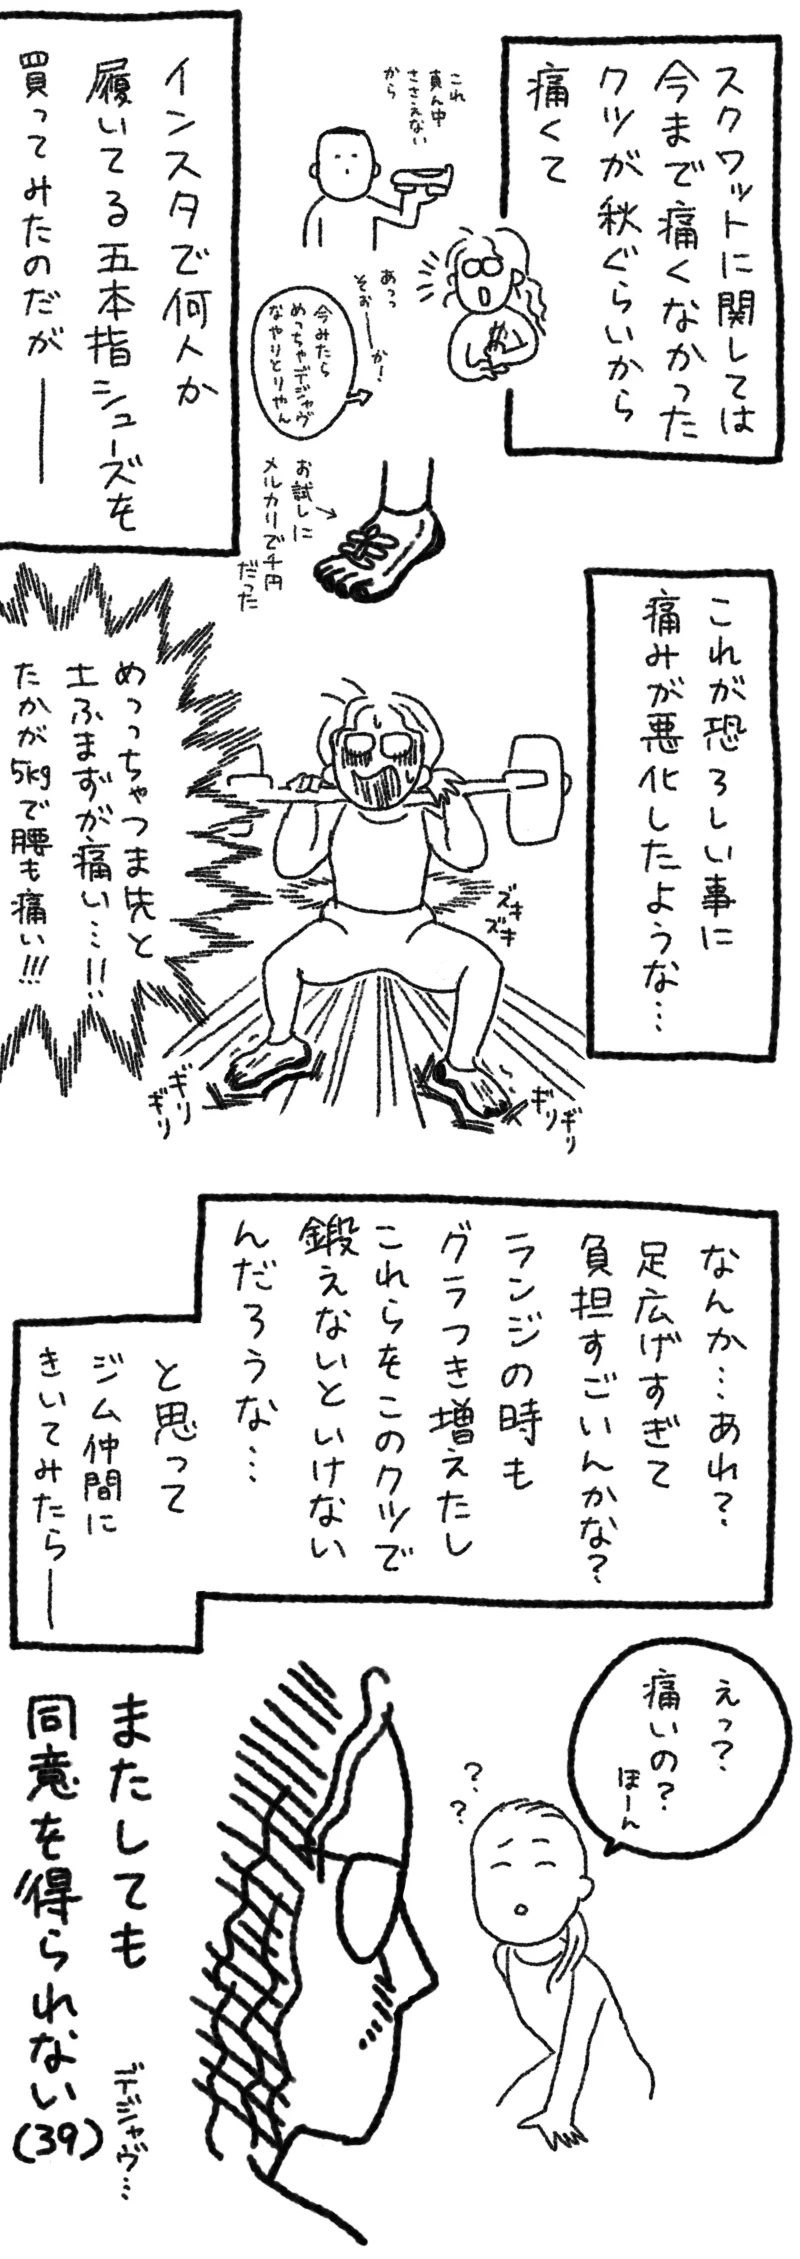 スクワットに関しては
今まで痛くなかった
クツが秋ぐらいから
痛くて
これ
真ん中
ささえない
から
あっっ
そぉーーか!
今みたら
めっちゃデジャヴ
なやりとりやん
インスタで何人か
履いてる五本指シューズを
買ってみたのだが――
お試しに
メルカリで千円
だった
これが恐ろしい事に
痛みが悪化したような…
ズキ
ズキ
めっっちゃつま先と
土ふまずが痛い…!!
たかが5kgで腰も痛い!!!
ギリ
ギリ
ギリ
ギリ
なんか…あれ?
足広げすぎて
負担すごいんかな?
ランジの時も
グラつき増えたし
これらをこのクツで
鍛えないといけない
んだろうな…
と思って
ジム仲間に
きいてみたら――
えっ?
痛いの?
ほーん
?
?
またしても
同意を得られない(39)
デジャヴ…